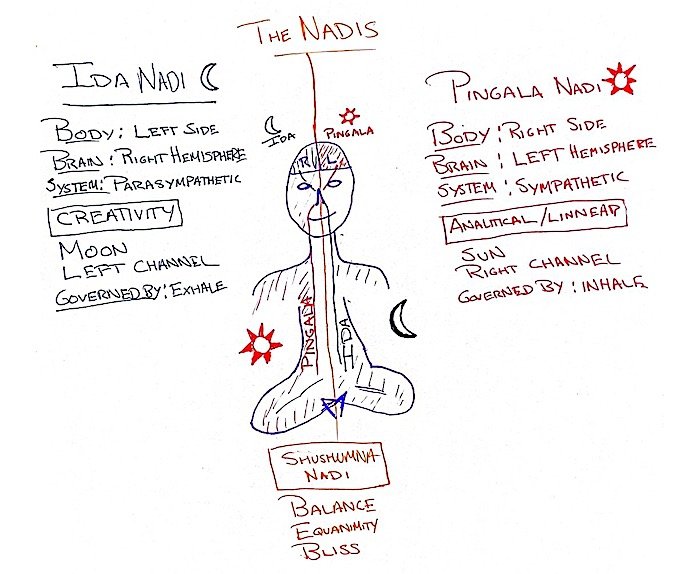 THE NADIS
IDA NADI
BODY: LEFT SIDE
BRAIN: RIGHT HEMISPHERE
SYSTEM: PARASYMPATHETIC
CREATIVITY
MOON
LEFT CHANNEL
GOVERNED BY: EXHALE
IDA
PINGALA
R
L
PINGALA
IDA
PINGALA NADI
BODY: RIGHT SIDE
BRAIN: LEFT HEMISPHERE
SYSTEM: SYMPATHETIC
ANALITICAL/LINNEAR
SUN
RIGHT CHANNEL
GOVERNED BY: INHALE
SHUSHUMNA
NADI
BALANCE
EQUANIMITY
BLISS